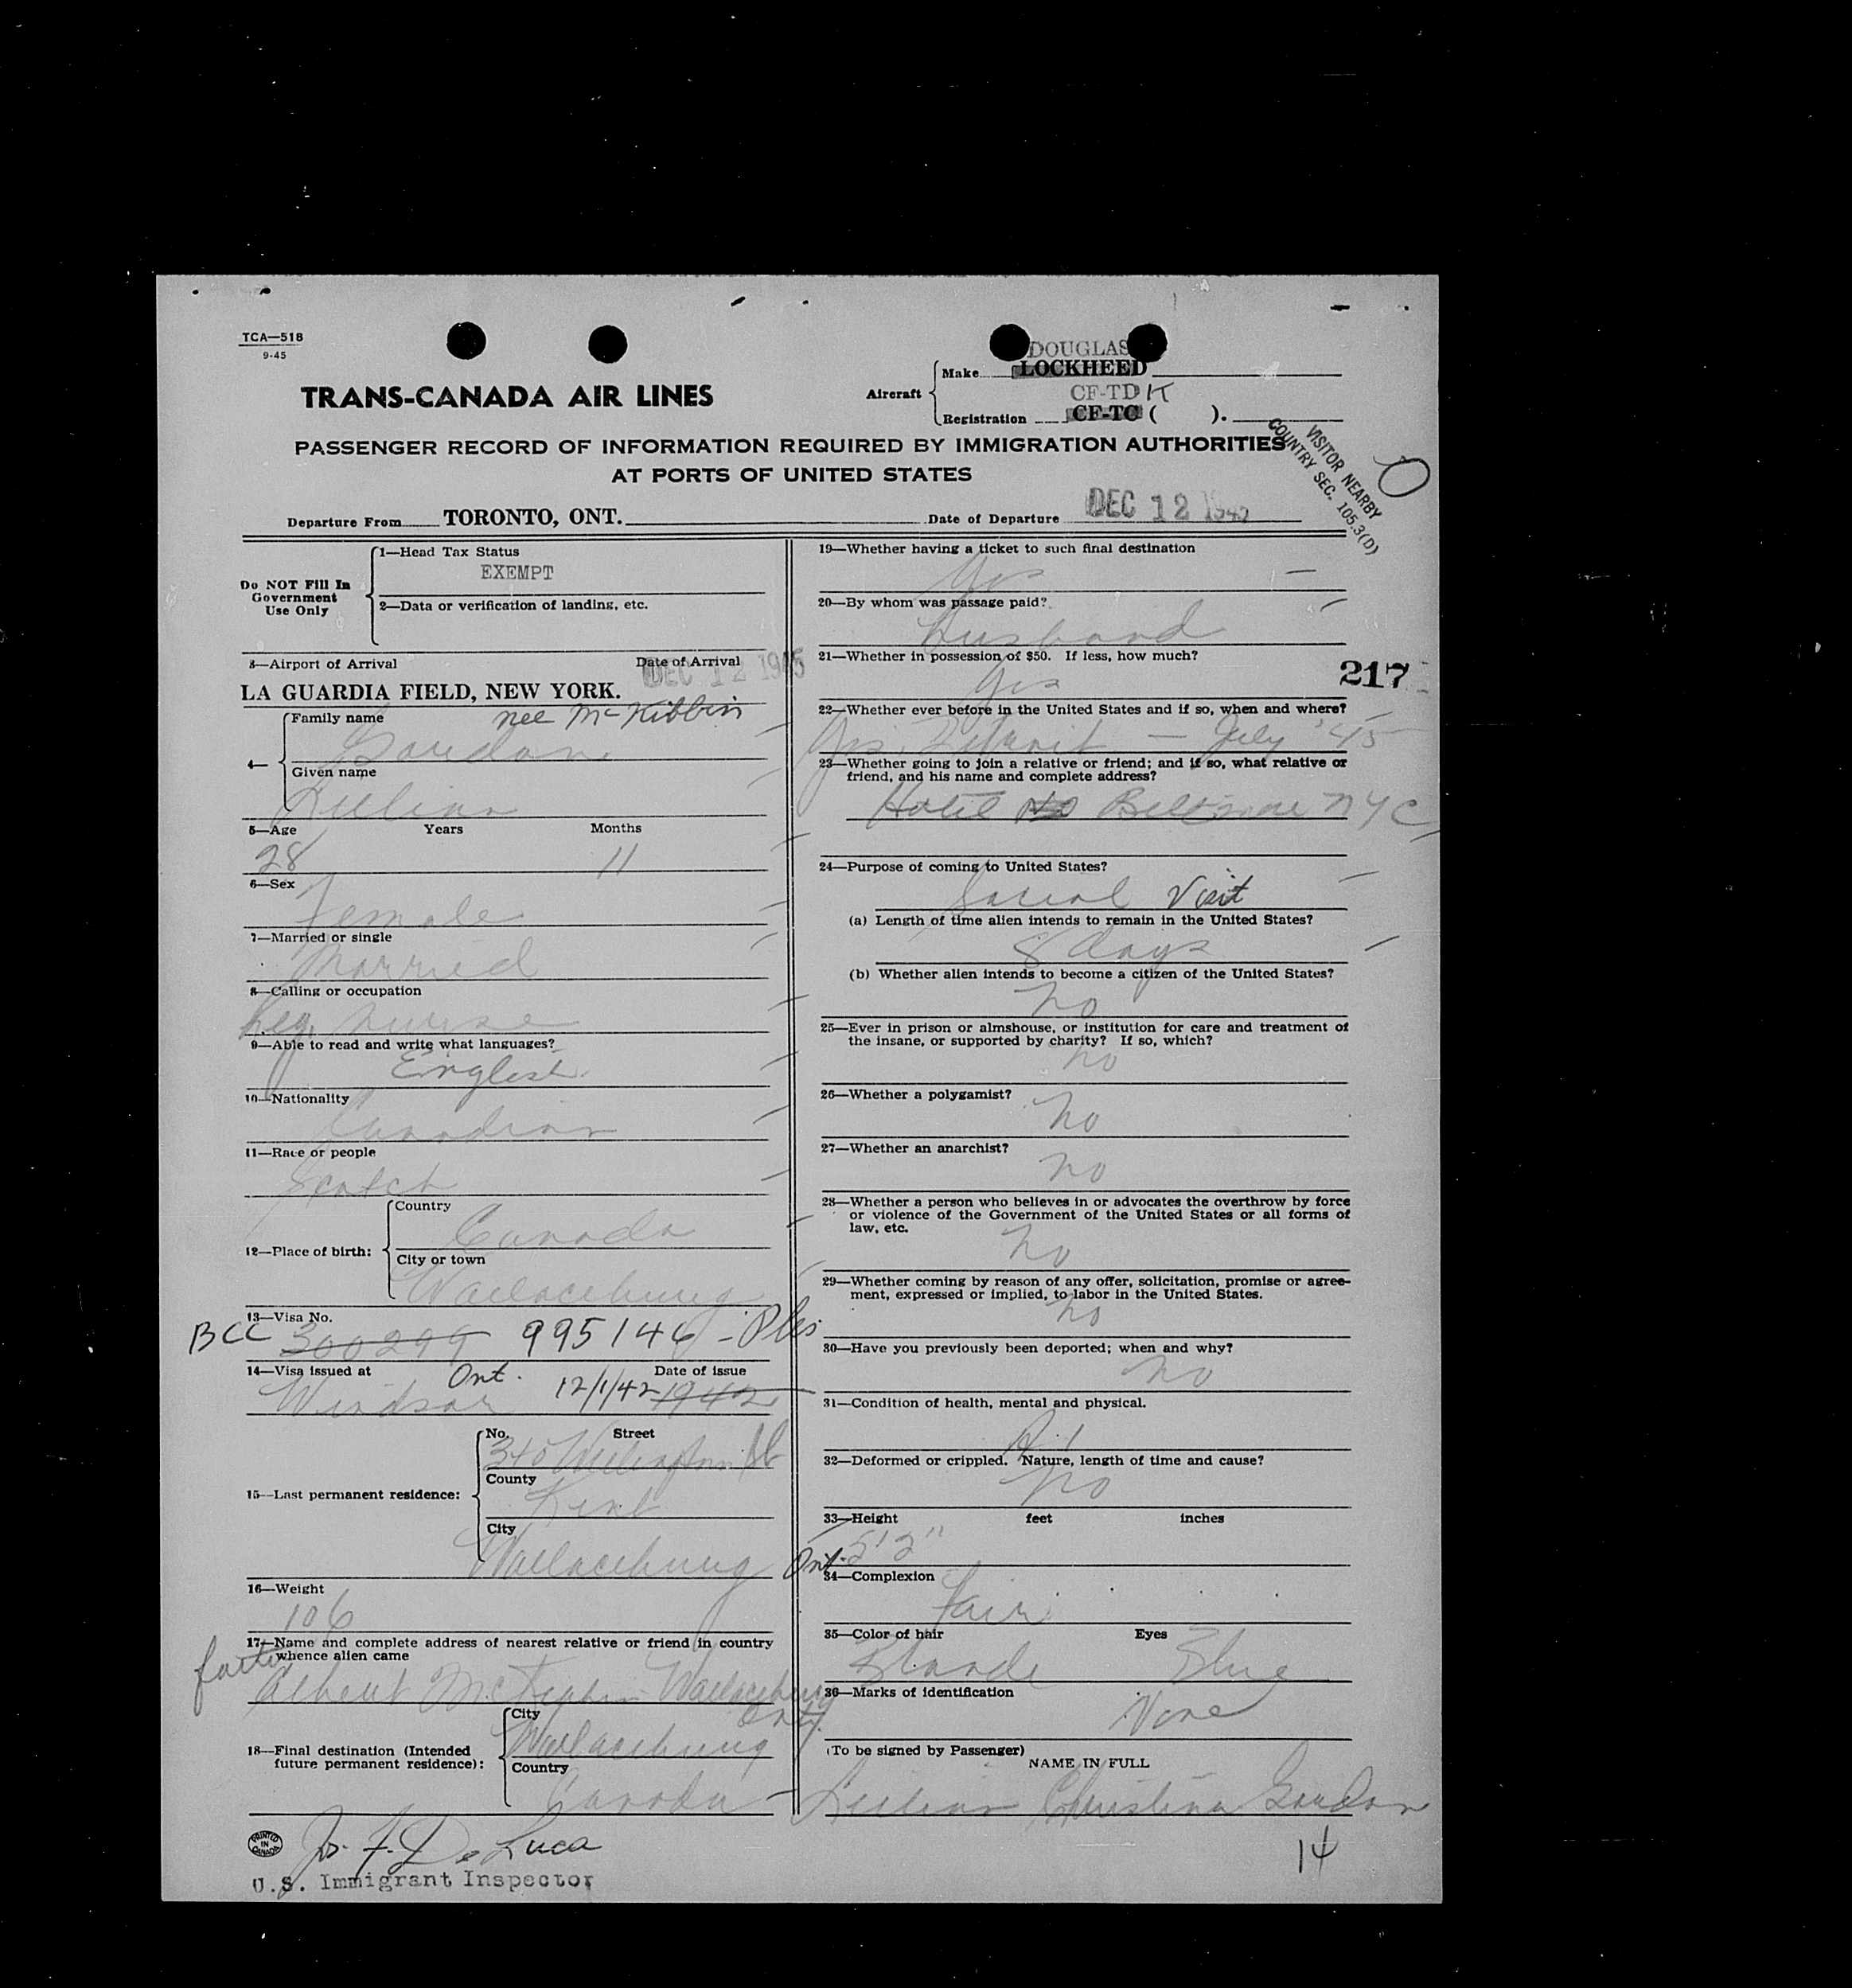 TCA—518
9-45
TRANS-CANADA AIR LINES
Aircraft
DOUGLAS
Make LOCKHEED
CF-TDK
Registration CF-TC ( ).
PASSENGER RECORD OF INFORMATION REQUIRED BY IMMIGRATION AUTHORITIES
AT PORTS OF UNITED STATES
VISITOR NEARBY
COUNTRY SEC. 105.3(D)
Departure From TORONTO, ONT. Date of Departure DEC 12 1945
Do NOT Fill In
Government
Use Only
1—Head Tax Status
EXEMPT
2—Data or verification of landing, etc.
3—Airport of Arrival Date of Arrival
DEC 12 1945
LA GUARDIA FIELD, NEW YORK.
4—
Family name nee McKibbin
Given name
Lillian
5—Age Years Months
28 11
6—Sex
Female
7—Married or single
Married
8—Calling or occupation
Reg. Nurse
9—Able to read and write what languages?
English
10—Nationality
Canadian
11—Race or people
Scotch
12—Place of birth:
Country
Canada
City or town
Wallaceburg
13—Visa No.
BCC 300299 995146
14—Visa issued at Ont. Date of issue
Windsor 12/1/42 1942
15—Last permanent residence:
No. Street
340 Wellington St
County
Kent
City
Wallaceburg Ont.
16—Weight
106
17—Name and complete address of nearest relative or friend in country
whence alien came
father
Albert McKibbin Wallaceburg
Ont.
18—Final destination (Intended
future permanent residence):
City
Wallaceburg
Country
Canada
Jos. F. De Luca
U.S. Immigrant Inspector
PRINTED IN CANADA
19—Whether having a ticket to such final destination
Yes
20—By whom was passage paid?
Husband
21—Whether in possession of $50. If less, how much?
Yes
217
22—Whether ever before in the United States and if so, when and where?
Yes, Detroit — July '45
23—Whether going to join a relative or friend; and if so, what relative or
friend, and his name and complete address?
Hotel Biltmore NYC
24—Purpose of coming to United States?
Social Visit
(a) Length of time alien intends to remain in the United States?
8 days
(b) Whether alien intends to become a citizen of the United States?
No
25—Ever in prison or almshouse, or institution for care and treatment of
the insane, or supported by charity? If so, which?
No
26—Whether a polygamist?
No
27—Whether an anarchist?
No
28—Whether a person who believes in or advocates the overthrow by force
or violence of the Government of the United States or all forms of
law, etc.
No
29—Whether coming by reason of any offer, solicitation, promise or agree-
ment, expressed or implied, to labor in the United States.
No
30—Have you previously been deported; when and why?
No
31—Condition of health, mental and physical.
A.1
32—Deformed or crippled. Nature, length of time and cause?
No
33—Height feet inches
5'2"
34—Complexion
Fair
35—Color of hair Eyes
Blonde Blue
36—Marks of identification
None
(To be signed by Passenger)
NAME IN FULL
Lillian Christina
14